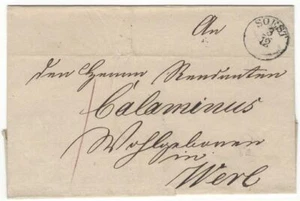 An
SOEST
den Herrn Rendanten
Calaminus
Wohlgeboren
in
Werl